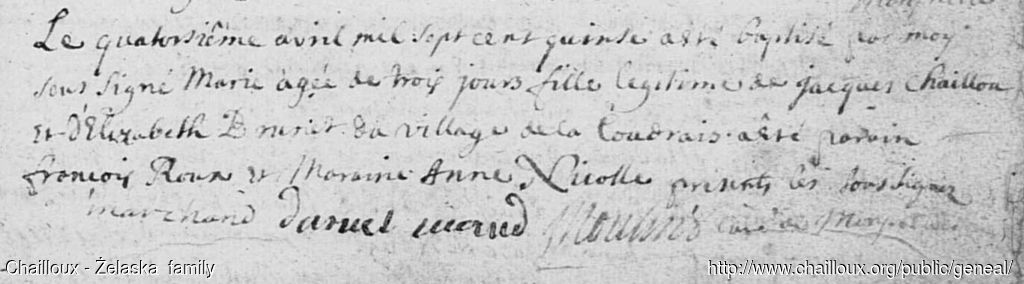 Le quatorsiême avril mil sept cent quinse a êté baptisé par moy
sous signé Marie agée de trois jours fille legitime de jacques Chaillou
et d'Elizabeth Brunet du village de la Coudrais a êté parain
francois Roux et Maraine Anne Nicolle presents les soussignez
marchand daniel Moulins curé de
Chailloux - Żelaska family
http://www.chailloux.org/public/geneal/